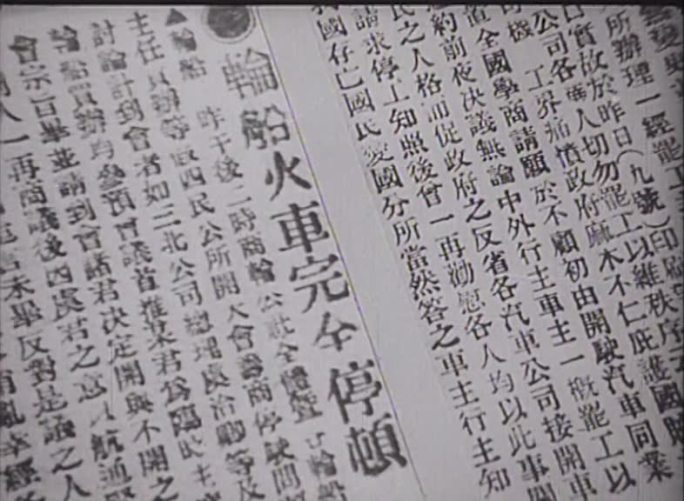 所辦理一經罷工
日實故於昨日(九號)印刷
公司各華人切勿罷工以維秩序
司機 工界痛憤政府麻木不仁庇護國賊
置全國學商請願於不顧初由開駛汽車同業
約前夜決議無論中外行主車主一概罷工以
民之人格而促政府之反省各汽車公司接開車
請求停工知照後曾一再勸慰各人均以此事
國存亡國民愛國分所當然答之車主行主知
輪船火車完全停頓
▲輪船 昨午後二時商輪公社全體暨 輪船
主任買辦等假四民公所開大會籌商停駛問
討論計到會者如三北公司總理虞洽卿等及
輪船買辦均參預會議首推某君為臨時主
會宗旨畢並請到會諸君決定開與不開之
人一再商議後因虞君之意以航通
言未畢反對是議之人